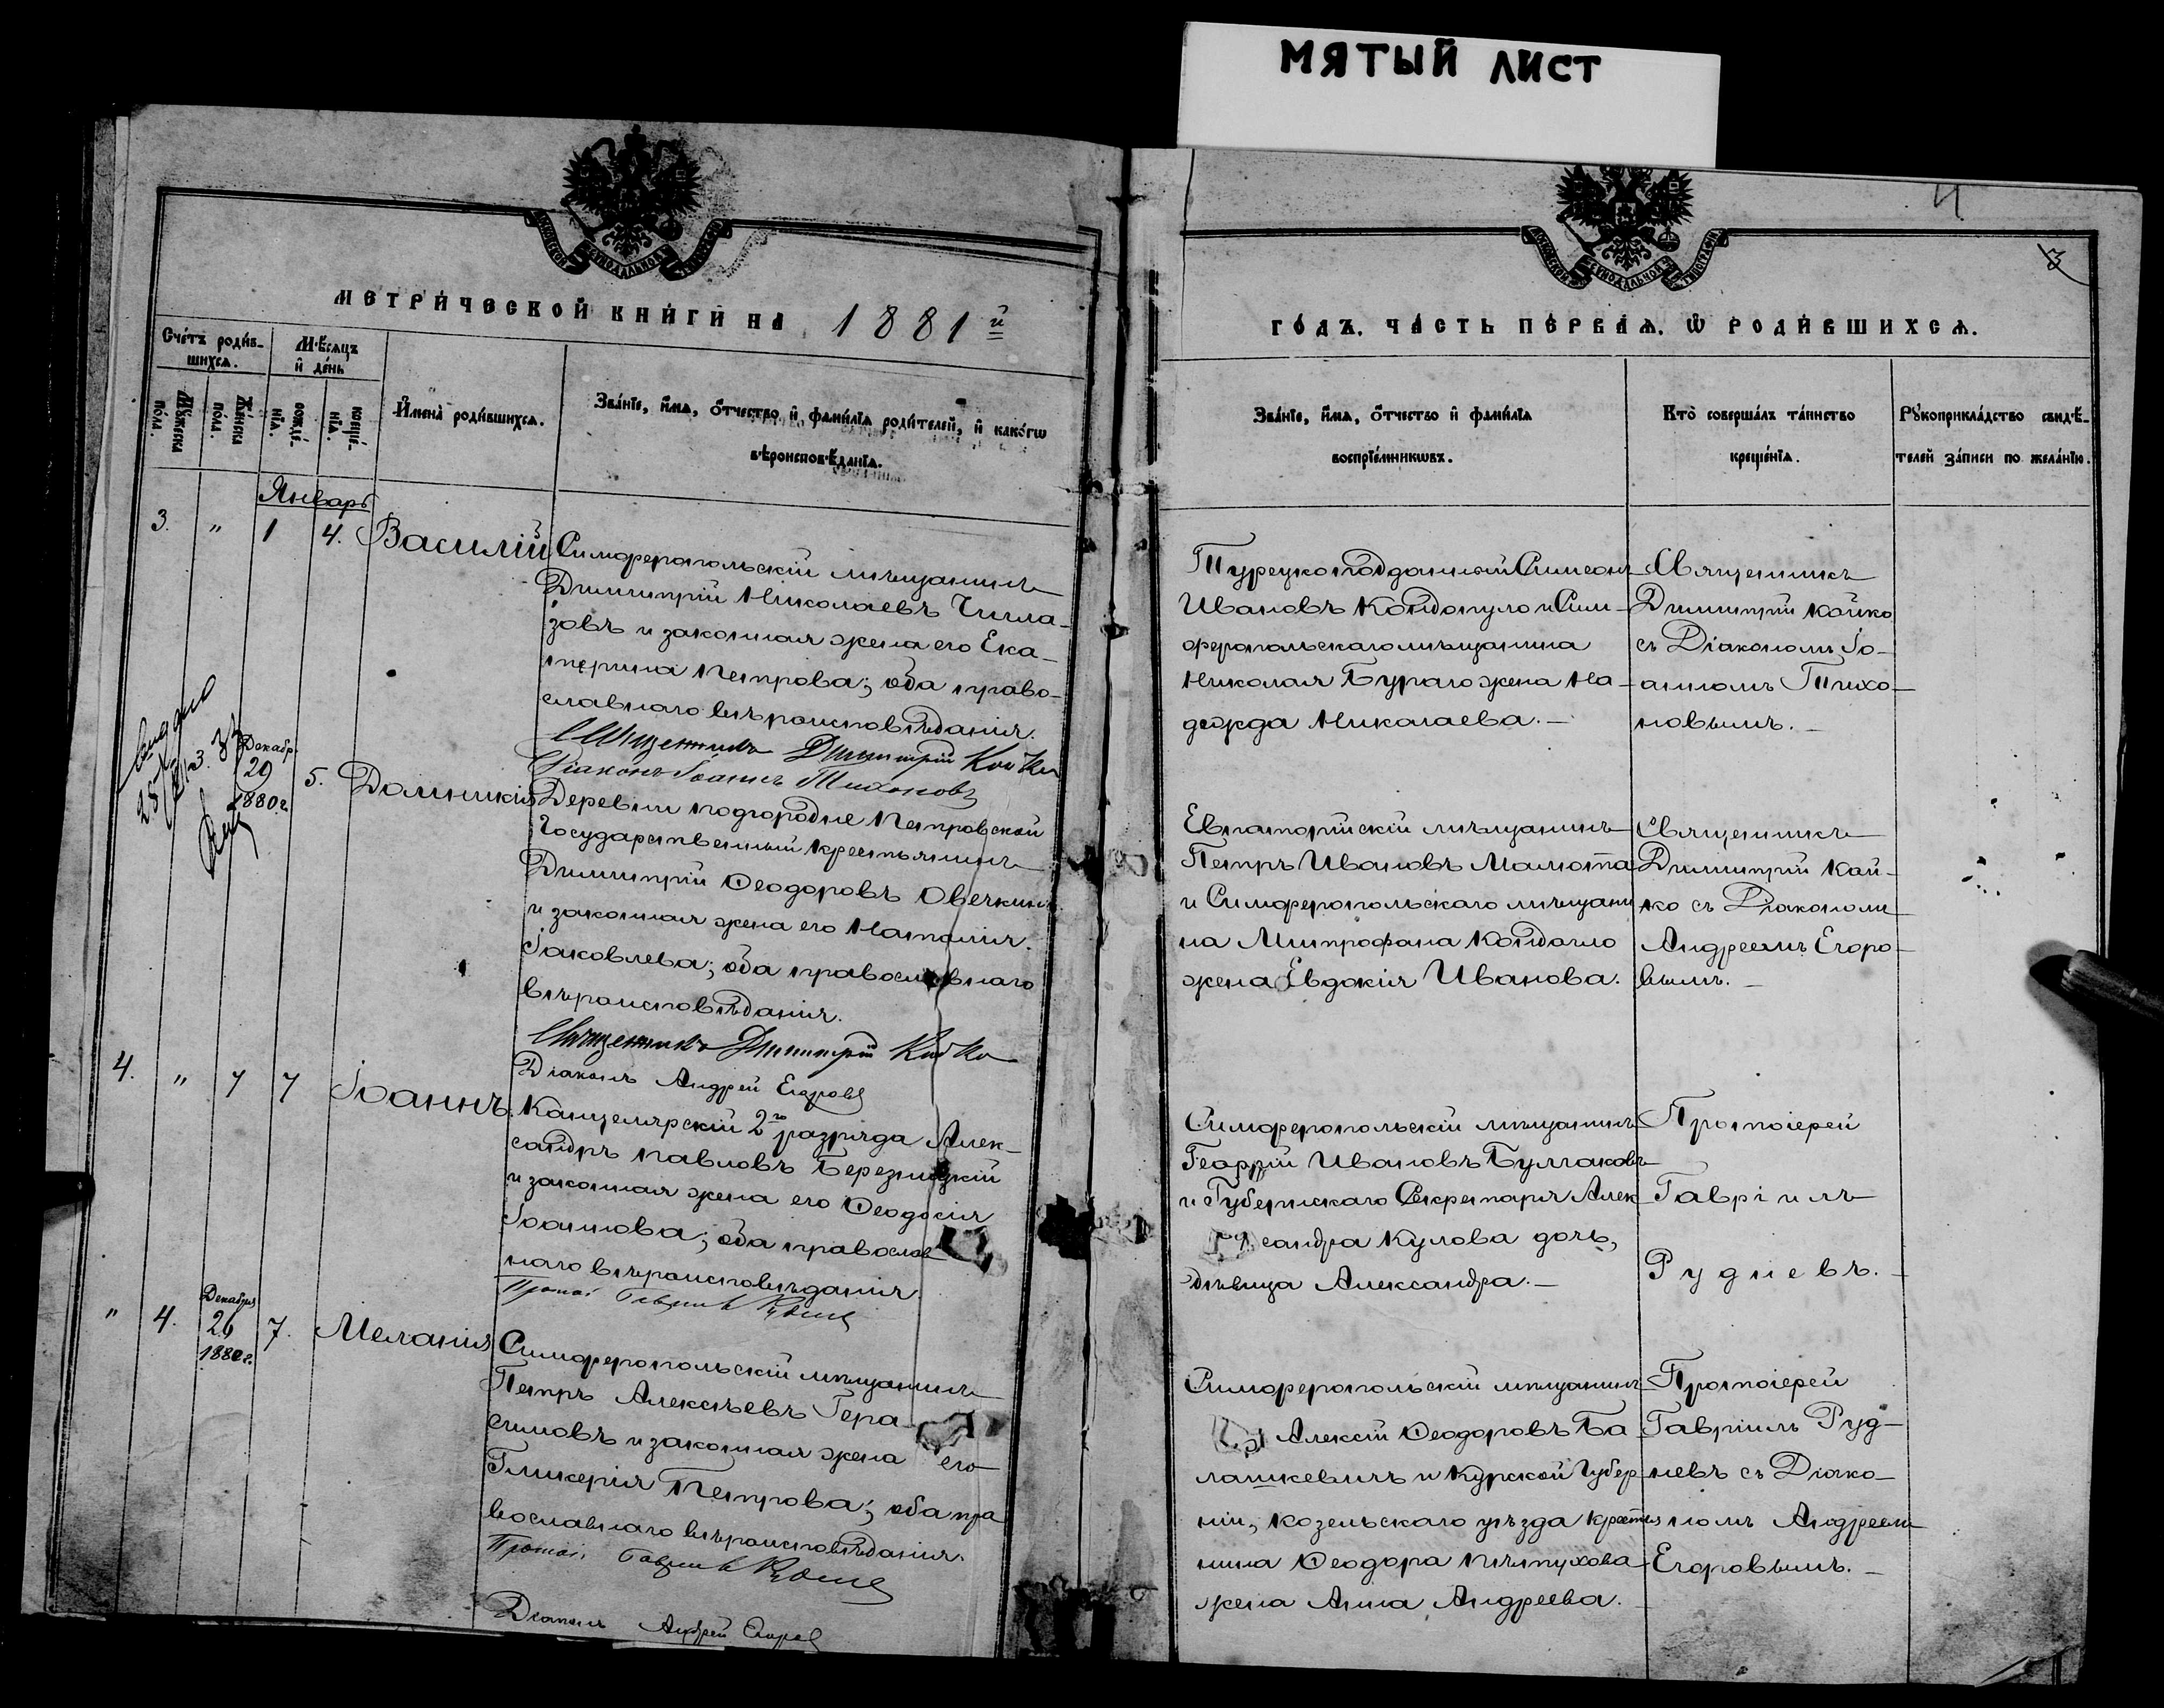 МЯТЫЙ ЛИСТ
МОСКОВСКОЙ СѴНОДАЛЬНОЙ ТИПОГРАФІИ
МЕТРИЧЕСКОЙ КНИГИ НА 1881й
Счетъ родив-
шихся.
Мѣсяцъ
и день
Мужеска
пола.
Женска
пола.
рожде-
нія.
креще-
нія.
Имена родившихся.
Званіе, имя, отчество и фамилія родителей, и какогѡ
вѣроисповѣданія.
Январь
3. " 1 4. Василій
Симферопольскій мѣщанинъ
Димитрій Николаевъ
зовъ и законная жена его Ека-
терина Петрова; оба право-
славнаго вѣроисповѣданія.
Священникъ Димитрій Койко
Діаконъ Іоаннъ Тихоновъ
Декабр.
29
1880г.
5. Домникія
Деревни подгородне Петровской
Государственный крестьянинъ
Димитрій Ѳеодоровъ Овечкинъ
и законная жена его Наталія
Іаковлева; оба православнаго
вѣроисповѣданія.
Священникъ Димитрій Койко
Діаконъ Андрей Егоровъ
4. " 7 7 Іоаннъ.
Канцелярскій 2го разряда Алек-
сандръ Павловъ Березницкій
и законная жена его Ѳеодосія
Іоаннова; оба православ
наго вѣроисповѣданія.
Протоі Гавриилъ Рудневъ
" 4. Декабря
26
1880г.
7. Меланія
Симферопольскій мѣщанинъ
Петръ Алексѣевъ Гера-
симовъ и законная жена его
Гликерія Петрова; оба пра
вославнаго вѣроисповѣданія.
Протоі. Гавриилъ Рудневъ
Діаконъ Андрей Егоровъ
МОСКОВСКОЙ СѴНОДАЛЬНОЙ ТИПОГРАФІИ
4
3
ГОДЪ. ЧАСТЬ ПЕРВАЯ. Ѡ РОДИВШИХСЯ.
Званіе, имя, отчество и фамилія
воспріемникѡвъ.
Кто совершалъ таинство
крещенія.
Рукоприкладство свидѣ-
телей записи по желанію.
Турецкоподданный Симеонъ
Ивановъ Кондопуло и Сим-
феропольскаго мѣщанина
Николая Бураго жена На-
дежда Николаева.—
Священникъ
Димитрій Койко
съ Діакономъ Іо-
анномъ Тихо-
новымъ.—
Евпаторійскій мѣщанинъ
Петръ Ивановъ Малюта
и Симферопольскаго мѣщани
на Митрофана Кондогло
жена Евдокія Иванова.
Священникъ
Димитрій Кой-
ко съ Діакономъ
Андреемъ Егоро-
вымъ.—
Симферопольскій мѣщанинъ
Георгій Ивановъ Булгаковъ
и Губернскаго Секретаря Алек
сандра Кулова дочь,
дѣвица Александра.—
Протоіерей
Гавріилъ
Рудневъ.—
Симферопольскій мѣщанинъ
Алексій Ѳеодоровъ Ба
лашкевичъ и Курской Губер
ніи, козельскаго уѣзда крестья
нина Ѳеодора Пѣтухова
жена Анна Андреева.
Протоіерей
Гавріилъ Руд-
невъ съ Діако-
номъ Андреемъ
Егоровымъ.—